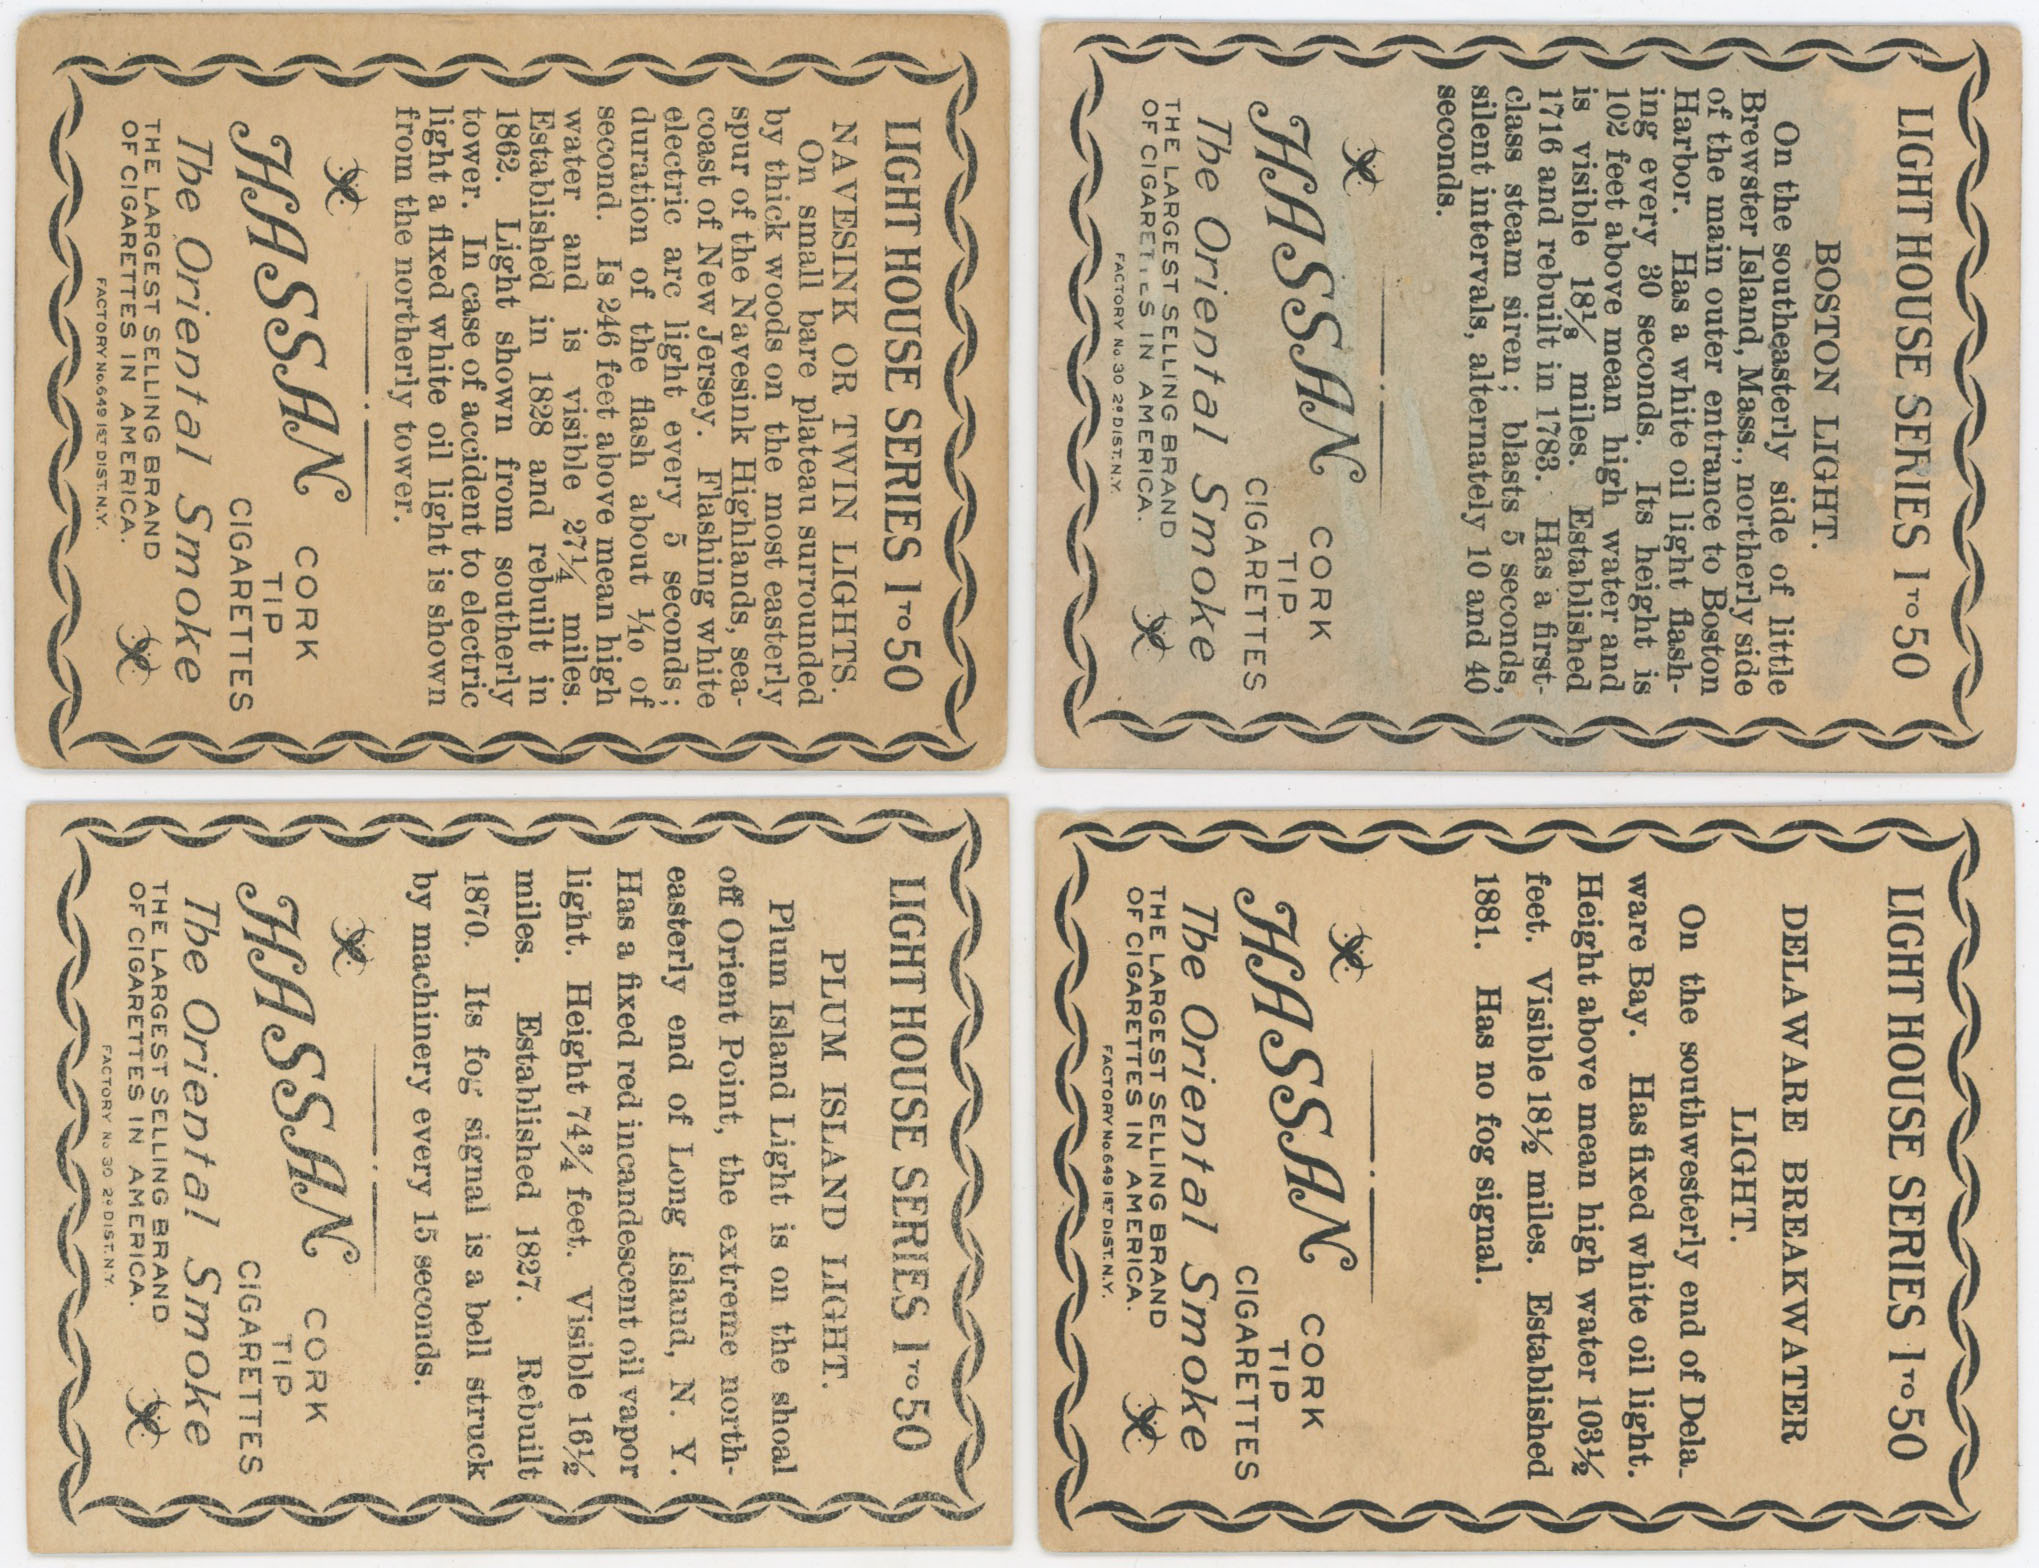 LIGHT HOUSE SERIES 1 TO 50
NAVESINK OR TWIN LIGHTS.
On small bare plateau surrounded
by thick woods on the most easterly
spur of the Navesink Highlands, sea-
coast of New Jersey. Flashing white
electric arc light every 5 seconds;
duration of the flash about 1/10 of
second. Is 246 feet above mean high
water and is visible 27¼ miles.
Established in 1828 and rebuilt in
1862. Light shown from southerly
tower. In case of accident to electric
light a fixed white oil light is shown
from the northerly tower.
HASSAN
CORK
TIP
CIGARETTES
The Oriental Smoke
THE LARGEST SELLING BRAND
OF CIGARETTES IN AMERICA.
FACTORY No. 649 1ST DIST. N.Y.
LIGHT HOUSE SERIES 1 TO 50
BOSTON LIGHT.
On the southeasterly side of little
Brewster Island, Mass., northerly side
of the main outer entrance to Boston
Harbor. Has a white oil light flash-
ing every 30 seconds. Its height is
102 feet above mean high water and
is visible 18⅛ miles. Established
1716 and rebuilt in 1783. Has a first-
class steam siren; blasts 5 seconds,
silent intervals, alternately 10 and 40
seconds.
HASSAN
CORK
TIP
CIGARETTES
The Oriental Smoke
THE LARGEST SELLING BRAND
OF CIGARETTES IN AMERICA.
FACTORY No 30 2D DIST. N.Y.
LIGHT HOUSE SERIES 1 TO 50
PLUM ISLAND LIGHT.
Plum Island Light is on the shoal
off Orient Point, the extreme north-
easterly end of Long Island, N. Y.
Has a fixed red incandescent oil vapor
light. Height 74¾ feet. Visible 16½
miles. Established 1827. Rebuilt
1870. Its fog signal is a bell struck
by machinery every 15 seconds.
HASSAN
CORK
TIP
CIGARETTES
The Oriental Smoke
THE LARGEST SELLING BRAND
OF CIGARETTES IN AMERICA.
FACTORY No 30 2D DIST. N.Y.
LIGHT HOUSE SERIES 1 TO 50
DELAWARE BREAKWATER
LIGHT.
On the southwesterly end of Dela-
ware Bay. Has fixed white oil light.
Height above mean high water 103½
feet. Visible 18½ miles. Established
1881. Has no fog signal.
HASSAN
CORK
TIP
CIGARETTES
The Oriental Smoke
THE LARGEST SELLING BRAND
OF CIGARETTES IN AMERICA.
FACTORY No. 649 1ST DIST. N.Y.